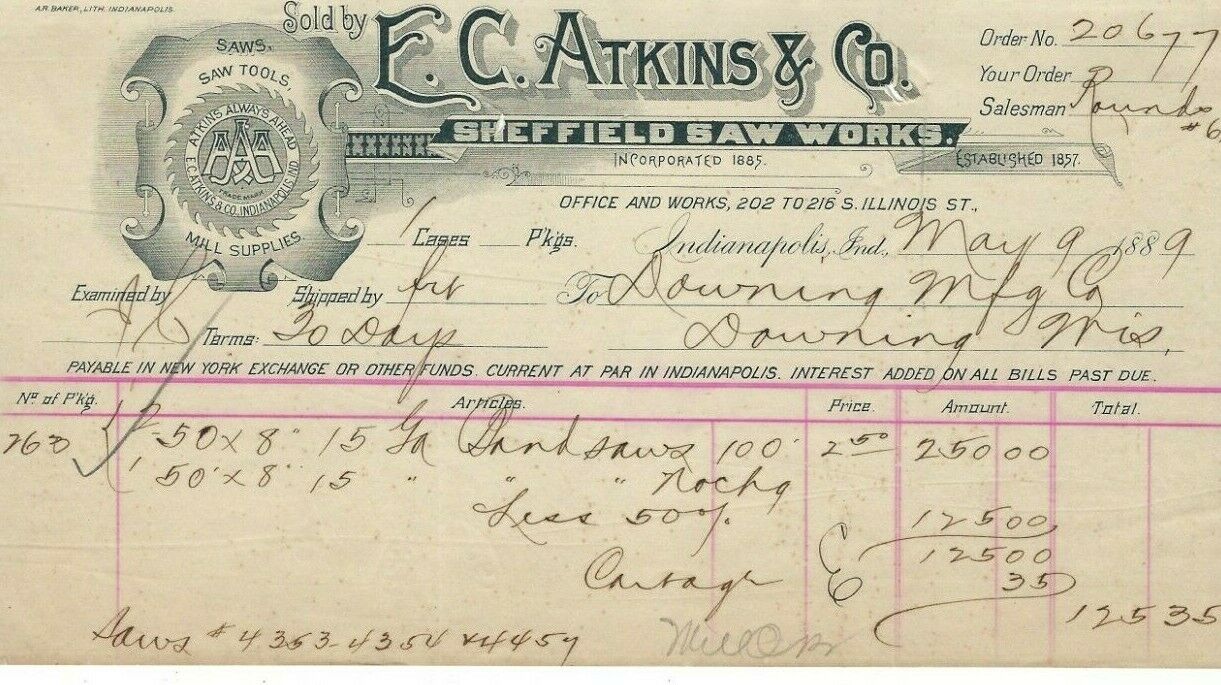 A.R. BAKER, LITH. INDIANAPOLIS
Sold by
E. C. ATKINS & CO.
SHEFFIELD SAW WORKS.
INCORPORATED 1885.
ESTABLISHED 1857.
Order No. 20677
Your Order
Salesman Rounds #6
SAWS,
SAW TOOLS,
ATKINS ALWAYS AHEAD
AAA
TRADE MARK
E.C. ATKINS & CO. INDIANAPOLIS, IND.
MILL SUPPLIES
OFFICE AND WORKS, 202 TO 216 S. ILLINOIS ST.,
1 Cases P'kgs. Indianapolis, Ind., May 9 1889
Examined by Shipped by frt To Downing Mfg Co
Terms: 30 Days Downing Wis,
PAYABLE IN NEW YORK EXCHANGE OR OTHER FUNDS. CURRENT AT PAR IN INDIANAPOLIS. INTEREST ADDED ON ALL BILLS PAST DUE.
No. of P'kg. Articles. Price. Amount. Total.
2 50 x 8" 15 Ga Bandsaws 100' 2 50 250 00
1 50' x 8" 15 " " "
Less 50% 125 00
125 00
Cartage 35
125 35
Saws # 4353-4354 & 4457